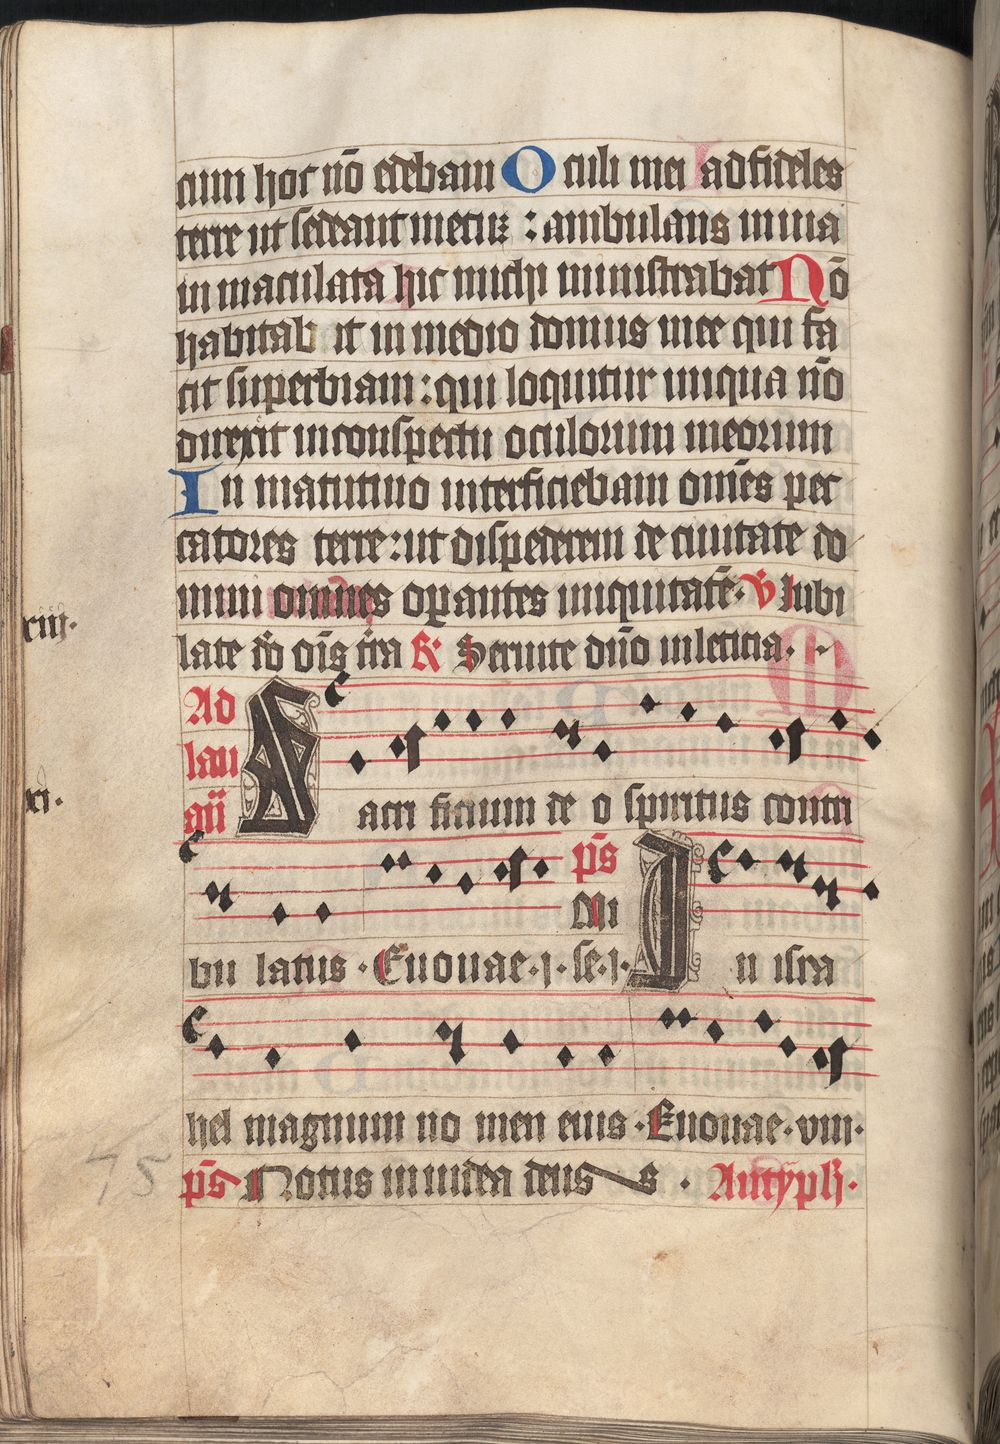 cum hoc nō edebam Oculi mei ad fideles
terre ut sedeant mecuz : ambulans in uia
in maculata hic michi ministrabat Nō
habitab it in medio domus mee qui fa
cit superbiam : qui loquitur iniqua nō
direxit in conspectu oculorum meorum
In matutino interficiebam om̄es pec
catores terre : ut disperderem de ciuitate do
mini omnes oꝑantes iniquitatē · V Iubi
late dō oīs t̄ra R Seruite dn̄o in leticia ·
xiiij ·
Ad
lau
añ
Sacri ficium de o spiritus contri
xi ·
p̄s
Mi
bu latus · Euouae · j · se · j · In isra
hel magnum no men eius · Euouae · viii ·
p̄s Notus in iudea deus s · Antyph ·
75